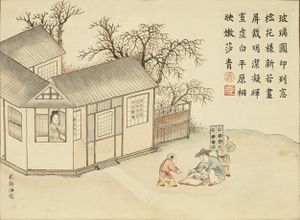 玻璃圓印到窓
櫺花樣新若畫
屏裁明潔凝輝
室虛白平原相
映嫩莎青